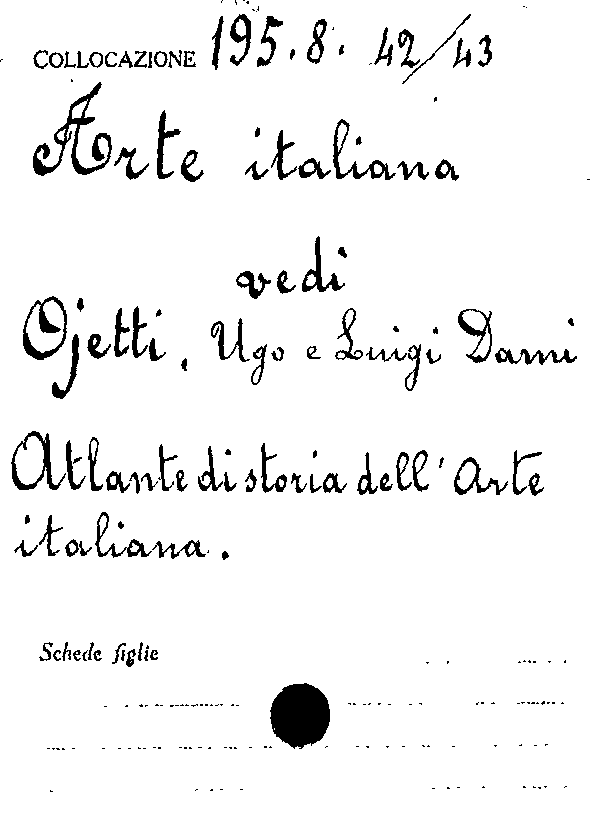 COLLOCAZIONE 195.8. 42/43
Arte italiana
vedi
Ojetti, Ugo e Luigi Dami
Atlante di storia dell'Arte
italiana.
Schede figlie